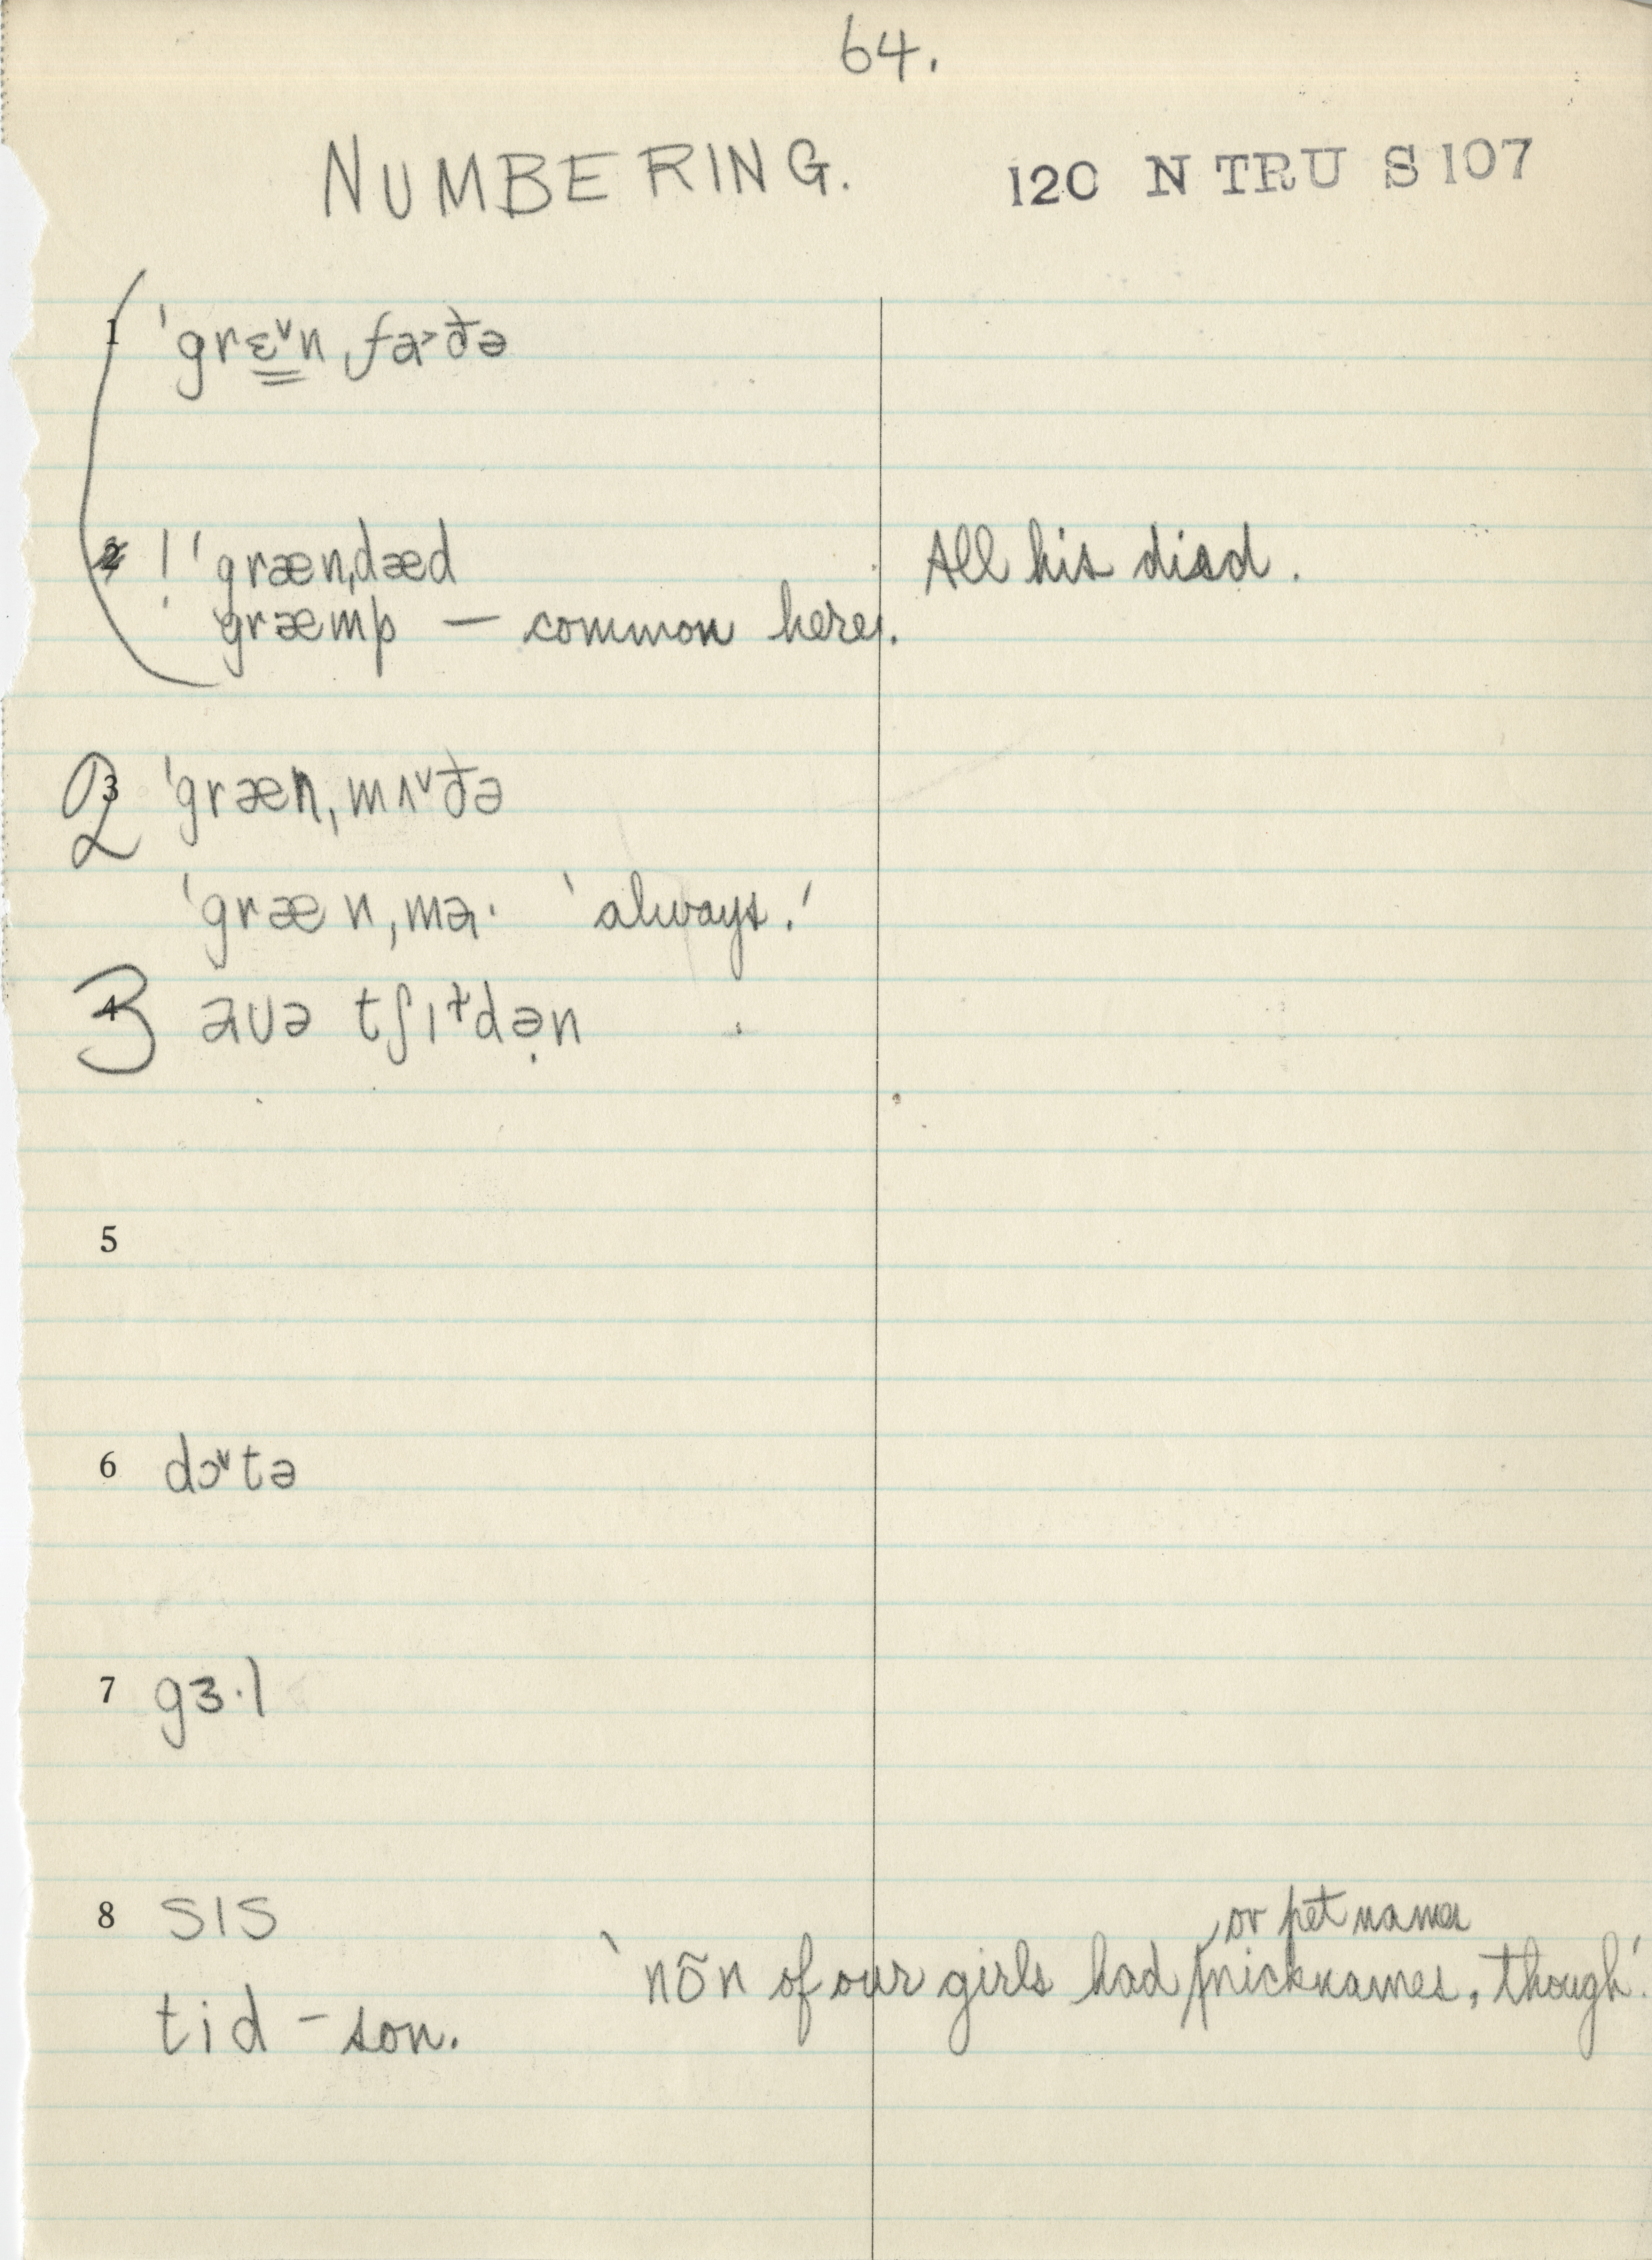 64.
NUMBERING. 120 N TRU S 107
1 ˈgrɛ˅nˌfa˃ðə
2 ! ˈgrænˌdæd All his died.
ˈgræmp — common here.
2 3 ˈgrænˌmʌ˅ðə
ˈgrænˌmɑ· 'always.'
3 4 ɑʊə tʃɪɫdə̣n
5
6 dɔ˅tə
7 gɜ·l
8 sɪs
or pet names
'nōn of our girls had nicknames, though.'
tid – son.